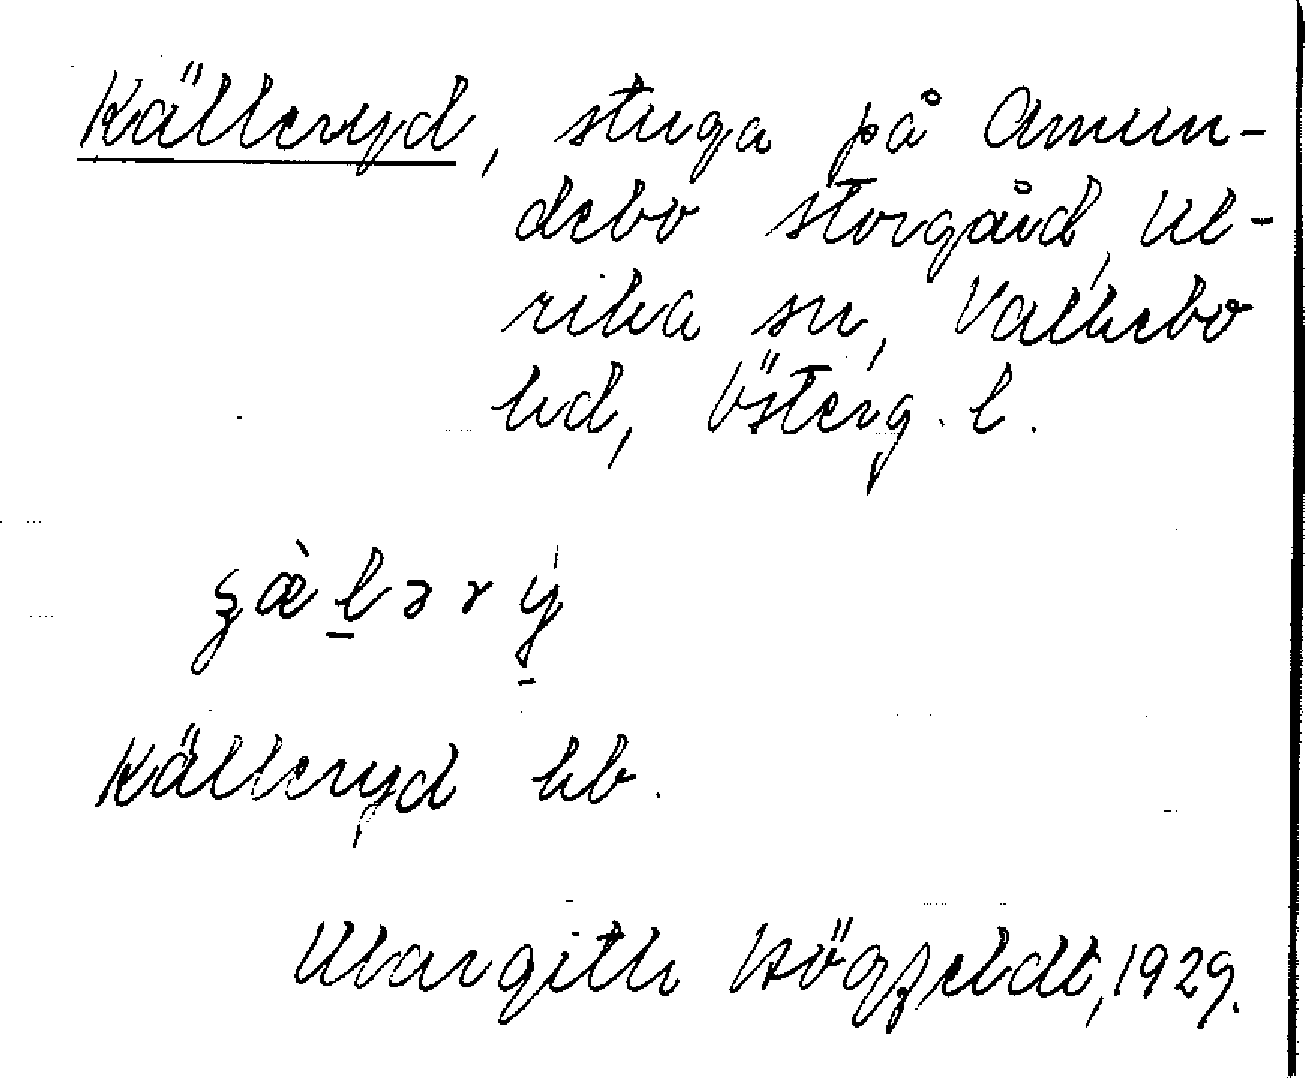 Källeryd, stuga på Amun-
debo storgård, Ul-
rika sn, Valkebo
hd, Österg. l.
ȥæ̀l̠ərý̠
Källeryd hb.
Margith Högfeldt, 1929.